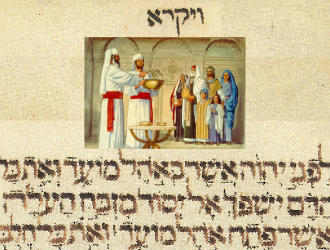 ויקרא
לפני יהוה אשר באהל מועד ואת כל
הדם ישפך אל יסוד מזבח העלה
פתח אהל מועד ואת כל